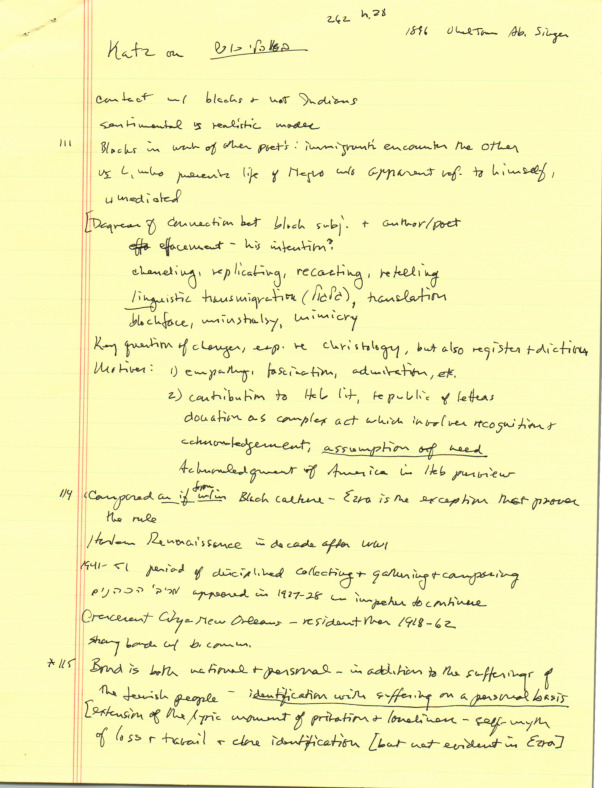 262 n.28
1896 Uncle Tom Ab. Singer
Katz on
contact w/ blacks + not Indians
sentimental vs realistic modes
111 Blacks in work of other poets: immigrants encounter the other
vs L, who presents life of Negro w/o apparent ref. to himself,
unmediated
[Degrees of connection bet black subj. + author/poet
effacement - his intention?
channeling, replicating, recasting, retelling
linguistic transmigration (גלגול), translation
blackface, minstralsy, mimicry
Key question of changes, esp. re christology, but also register + diction
Motives: 1) empathy, fascination, admiration, etc.
2) contribution to Heb lit, republic of letters
donation as complex act which involves recognition +
acknowledgement, assumption of need
Acknowledgment of America in Heb purview
114 Composed as if from w/in Black culture - Ezra is the exception that proves
the rule
Harlem Renaissance in decade after WWI
1941-51 period of disciplined collecting + gathering + composing
appeared in 1927-28 impetus to continue
Crescent City = New Orleans - resident there 1918-62
strong bonds w/ b. comm.
* 115 Bond is both national + personal - in addition to the sufferings of
the Jewish people - identification with suffering on a personal basis
[extension of the lyric moment of privation + loneliness - self-myth
of loss + travail + close identification [but not evident in Ezra]